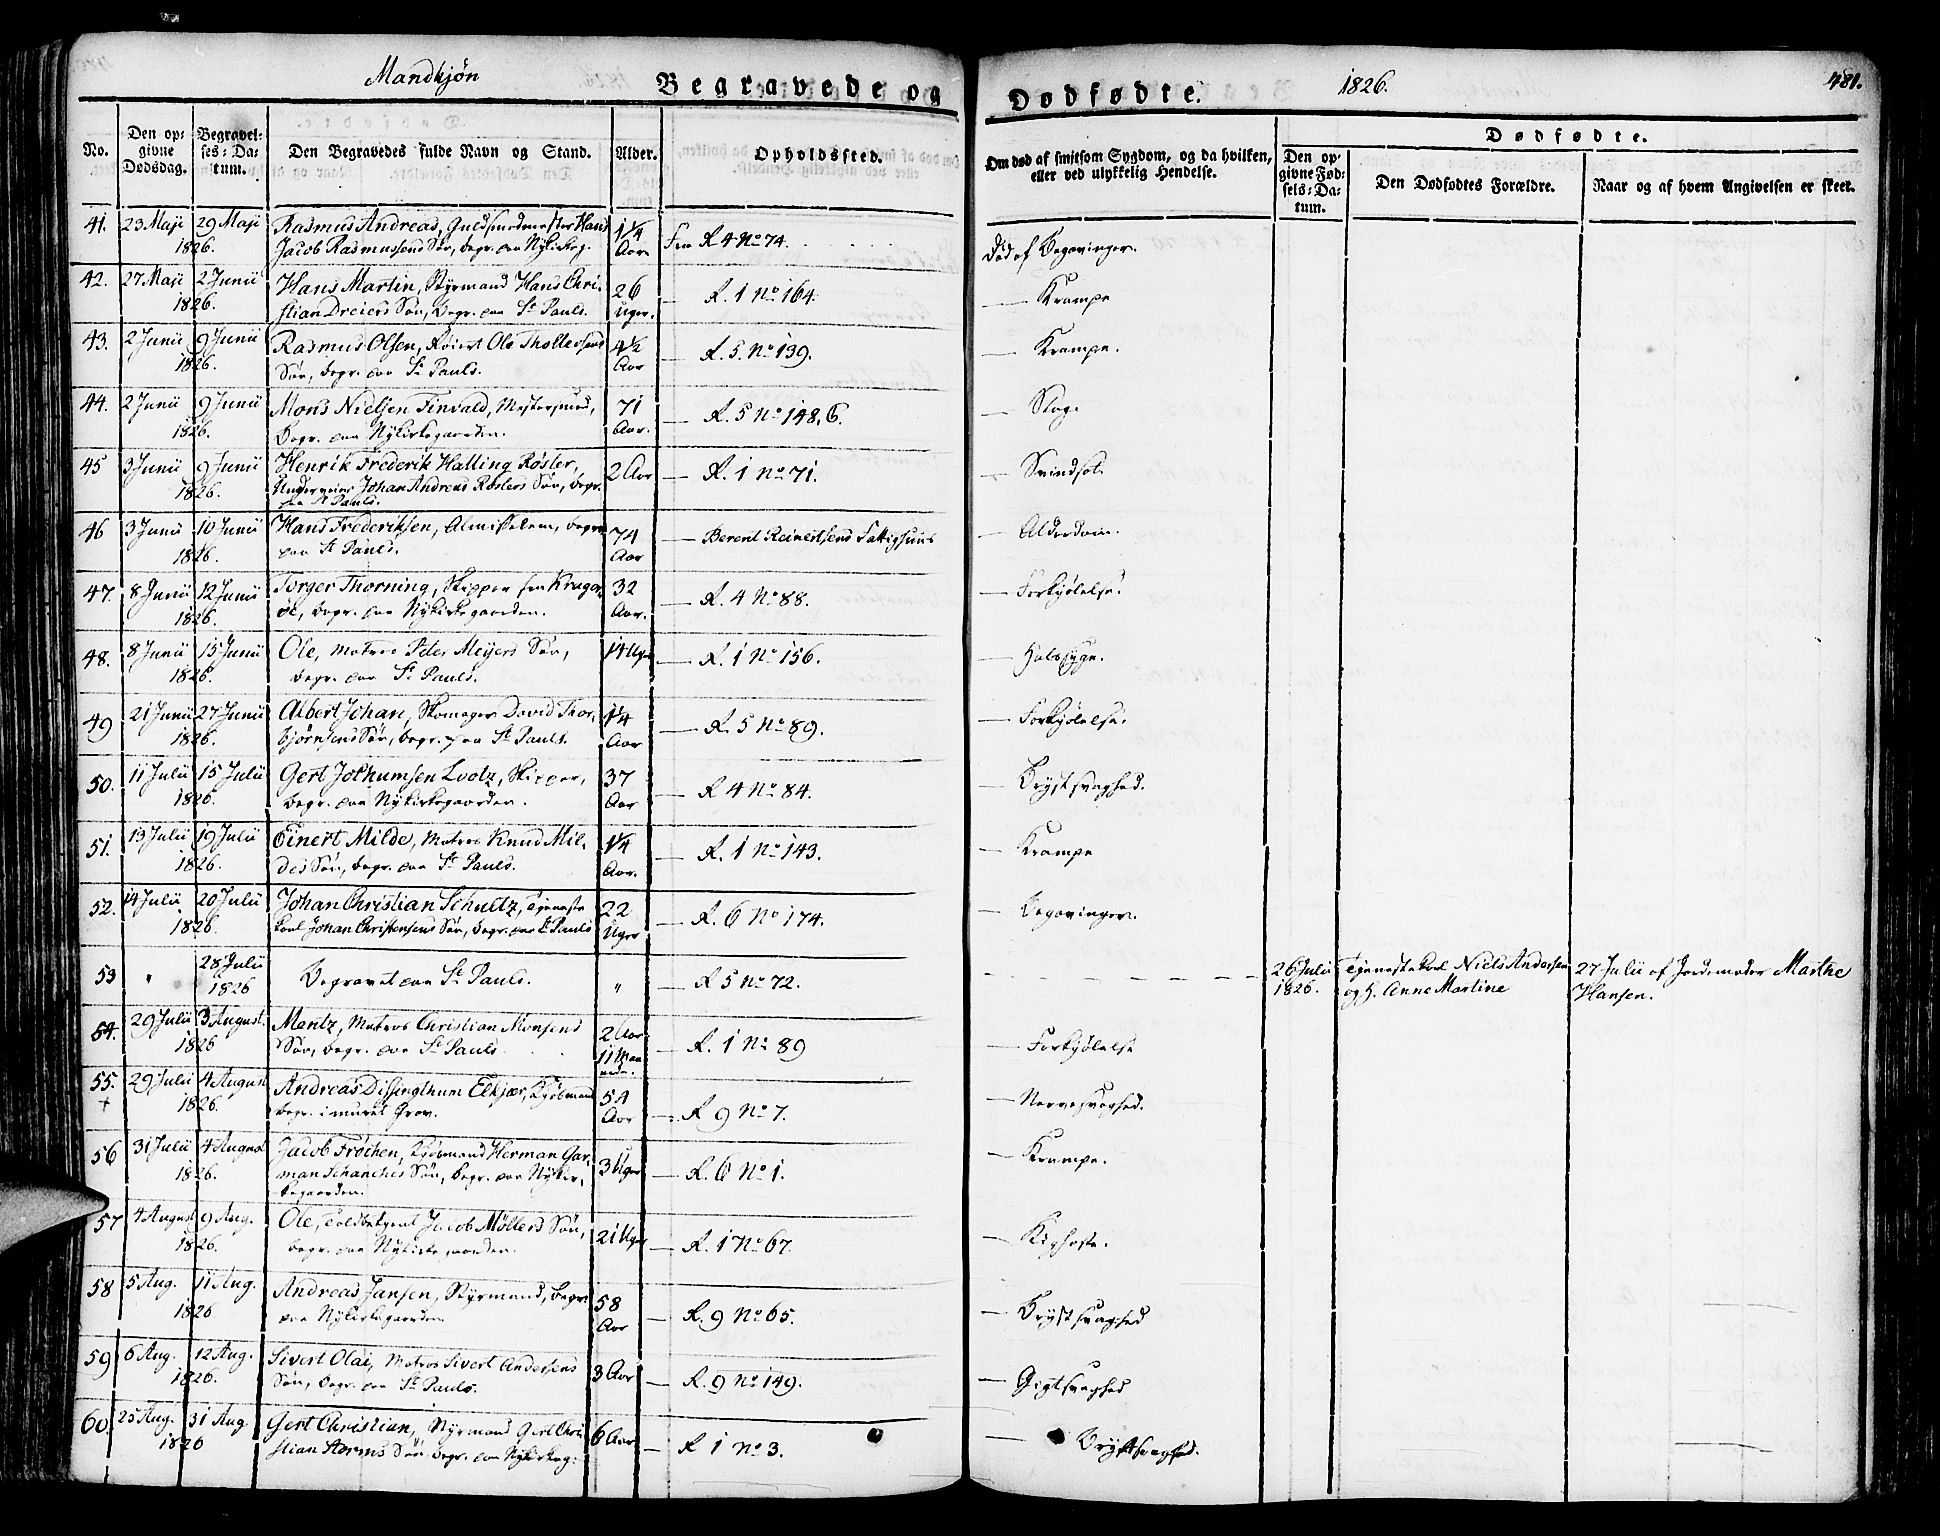 Mandkjøn
Begravede og
Dødfødte.
1826.
481.
No.
Den opgivne Dødsdag.
Begravelses-Datum.
Den Begravedes fulde Navn og Stand.
Alder.
Opholdssted.
Om død af smitsom Sygdom, og da hvilken, eller ved ulykkelig Hendelse.
Dødfødte.
Den opgivne Fødsels-Datum.
Den Dødfødtes Forældre.
Naar og af hvem Angivelsen er skeet.
41. 23 Maji 29 Maji Rasmus Andreas, Guldsmedmester Hans 1 1/4 Fra R 4 No 74. Død af
1826. Jacob Rasmussens Søn, begr. paa Nykirkeg. Aar
42. 27 Maji 2 Junii Hans Martin, Styrmand Hans Chri- 26 — R. 1 No 164. — Krampe
1826. stian Dreiers Søn, Begr. paa St Pauls. Uger.
43. 2 Junii 9 Junii Rasmus Olsen, Ole Thollefsens 4 1/2 — R. 5. No 139. — Krampe.
1826. Søn, begr. paa St Pauls. Aar
44. 2 Junii 9 Junii Mons Nielsen Finvald, Mestersmed, 71 — R. 5 No 148,6. — Slag.
1826. Begr. paa Nykirkegaarden. Aar.
45 3 Junii 9 Junii Henrik Frederik Halling Røsler, 2 Aar — R. 1 No 71. — Svindsot.
1826. Johan Andreas Røslers Søn, begr.
paa St Pauls.
46 3 Junii 10 Junii Hans Frederiksen, Almisselem, begr. 74 — Berent Reinertsens Fattighuus — Alderdom.
1826. paa St Pauls. Aar
47. 8 Junii 12 Junii Torger Thorning, Skipper fra Krager- 32 — R. 4 No 88. — Forkjølelse.
1826. øe, begr. paa Nykirkegaarden. Aar.
48. 8 Junii 15 Junii Ole, Matros Peter Meyers Søn, 14 Uger — R. 1 No 156. — Halssyge.
1826. begr. paa St Pauls.
49 21 Junii 27 Junii Albert Johan, Skomager David Thor- 1 1/4 — R. 5 No 89. — Forkjølelse.
1826. bjørnsens Søn, begr. paa St Pauls. Aar
50. 11 Julii 15 Julii Gert Jochumsen Lootz, Skipper, 37 — R 4 No 84. — Brystsvaghed.
1826. begr. paa Nykirkegaarden. Aar
51. 13 Julii 19 Julii Einert Milde, Matros Knud Mil- 1 1/4 — R. 1 No 143. — Krampe
1826. des Søn, begr. paa St Pauls. Aar.
52. 14 Julii 20 Julii Johan Christian Schultz, Tjeneste- 22 — R. 6 No 174. —
1826. karl Johan Christensens Søn, begr. paa St Pauls Uger
53 " 28 Julii Begravet paa St Pauls. " — R 5 No 72. 26 Julii Tjenestekarl Niels Andersen 27 Julii af Jordemoder Marthe
1826 1826. og h. Anne Martine Hansen.
54. 29 Julii 3 August. Mentz, Matros Christian Monsens 2 Aar — R. 1 No 89 — Forkjølelse
1826 Søn, begr. paa St Pauls. 11 Maaneder.
55. 29 Julii 4 August Andreas Dissingthum Elkjær, Kjøbmand 54 — R 9 No 7. — Nervesvaghed.
+ 1826. begr. i muret Grav. Aar
56 31 Julii 4 August Jacob Frøchen, Kjøbmand Herman Gar- 3 Uger — R. 6 No 1. — Krampe.
1826. man Schanches Søn, begr. paa Nykir-
kegaarden.
57 4 August 9 Aug. Ole, Toldbetjent Jacob Møllers Søn, 21 Uger — R. 17 No 67. — Kighoste.
1826. begr. paa Nykirkegaarden.
58 5 Aug. 11 Aug. Andreas Jansen, Styrmand, begr. 58 — R. 9 No 65. — Brystsvaghed
1826 paa Nykirkegaarden Aar
59 6 Aug. 12 Aug. Sivert Olai, Matros Sivert Andersens 3 Aar — R. 9 No 149. — Gigtsvaghed
1826. Søn, begr. paa St Pauls.
60. 25 Aug. 31 Aug. Gert Christian, Styrmand Gert Chri- 6 Aar — R 1 No 3. — Brystsvaghed.
1826 stian Søn begr. paa Nykirkeg.